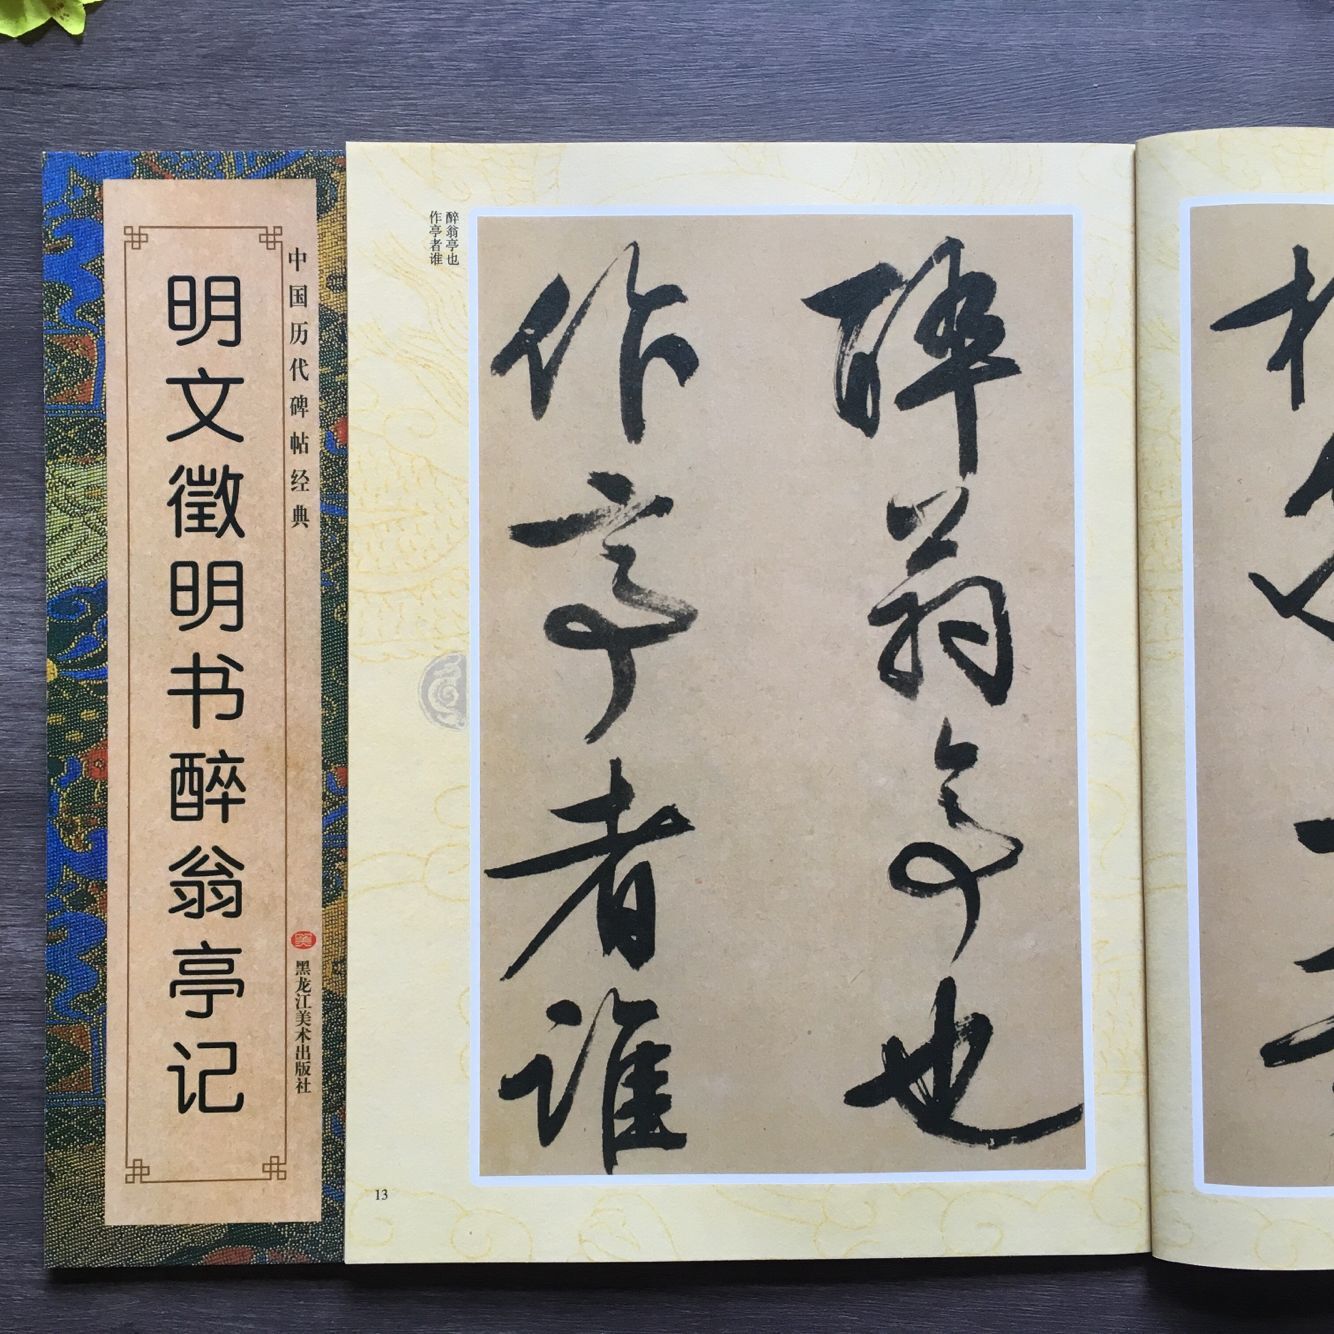 中国历代碑帖经典
明文徵明书醉翁亭记
黑龙江美术出版社
醉翁亭也
作亭者谁
醉翁亭也
作亭者谁
13